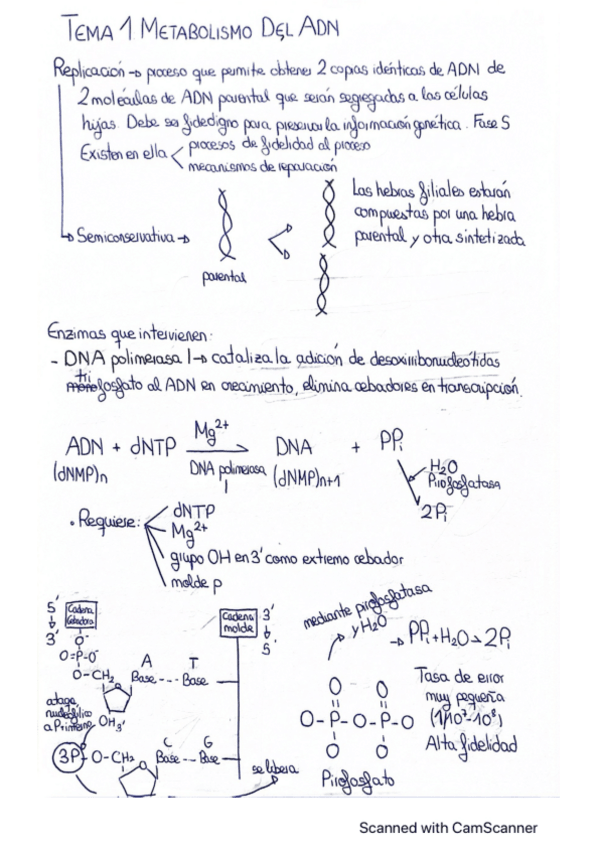 TEMA 1 METABOLISMO DEL ADN
Replicación → proceso que permite obtener 2 copias idénticas de ADN de
2 moléculas de ADN parental que serán segregadas a las células
hijas. Debe ser fidedigno para preservar la información genética. Fase S
Existen en ella < procesos de fidelidad al proceso
mecanismos de reparación
→ Semiconservativa →
parental
Las hebras filiales estarán
compuestas por una hebra
parental y otra sintetizada
Enzimas que intervienen:
- DNA polimerasa I → cataliza la adición de desoxirribonucleótidos
tri
fosfato al ADN en crecimiento, elimina cebadores en transcripción.
ADN + dNTP Mg²⁺ → DNA + PPi
(dNMP)n DNA polimerasa I (dNMP)n+1
H₂O
Pirofosfatasa
2Pi
• Requiere: dNTP
Mg²⁺
grupo OH en 3' como extremo cebador
molde p
5' ↓ 3'
Cadena Cebadora
Cadena molde
3' ↓ 5'
O⁻
O=P-O⁻
O-CH₂ Base --- Base
A T
ataque
nucleofílico
a P
OH 3'
3P O-CH₂ Base -- Base
C G
se libera
mediante pirofosfatasa
y H₂O
→ PPi + H₂O → 2Pi
O O
O-P-O-P-O
O O
Pirofosfato
Tasa de error
muy pequeña
Alta fidelidad
Scanned with CamScanner